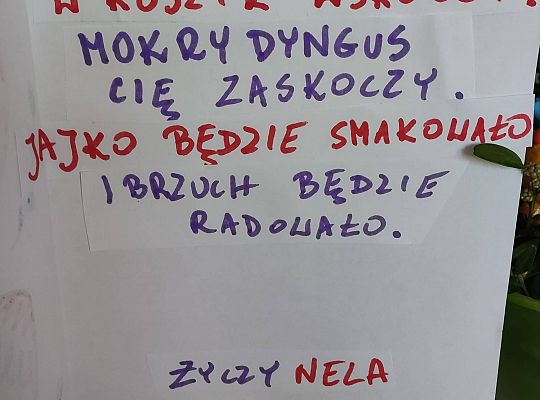 W KOSZYK WSKOCZY.
MOKRY DYNGUS
CIĘ ZASKOCZY.
JAJKO BĘDZIE SMAKOWAŁO
I BRZUCH BĘDZIE
RADOWAŁO.
ŻYCZY NELA